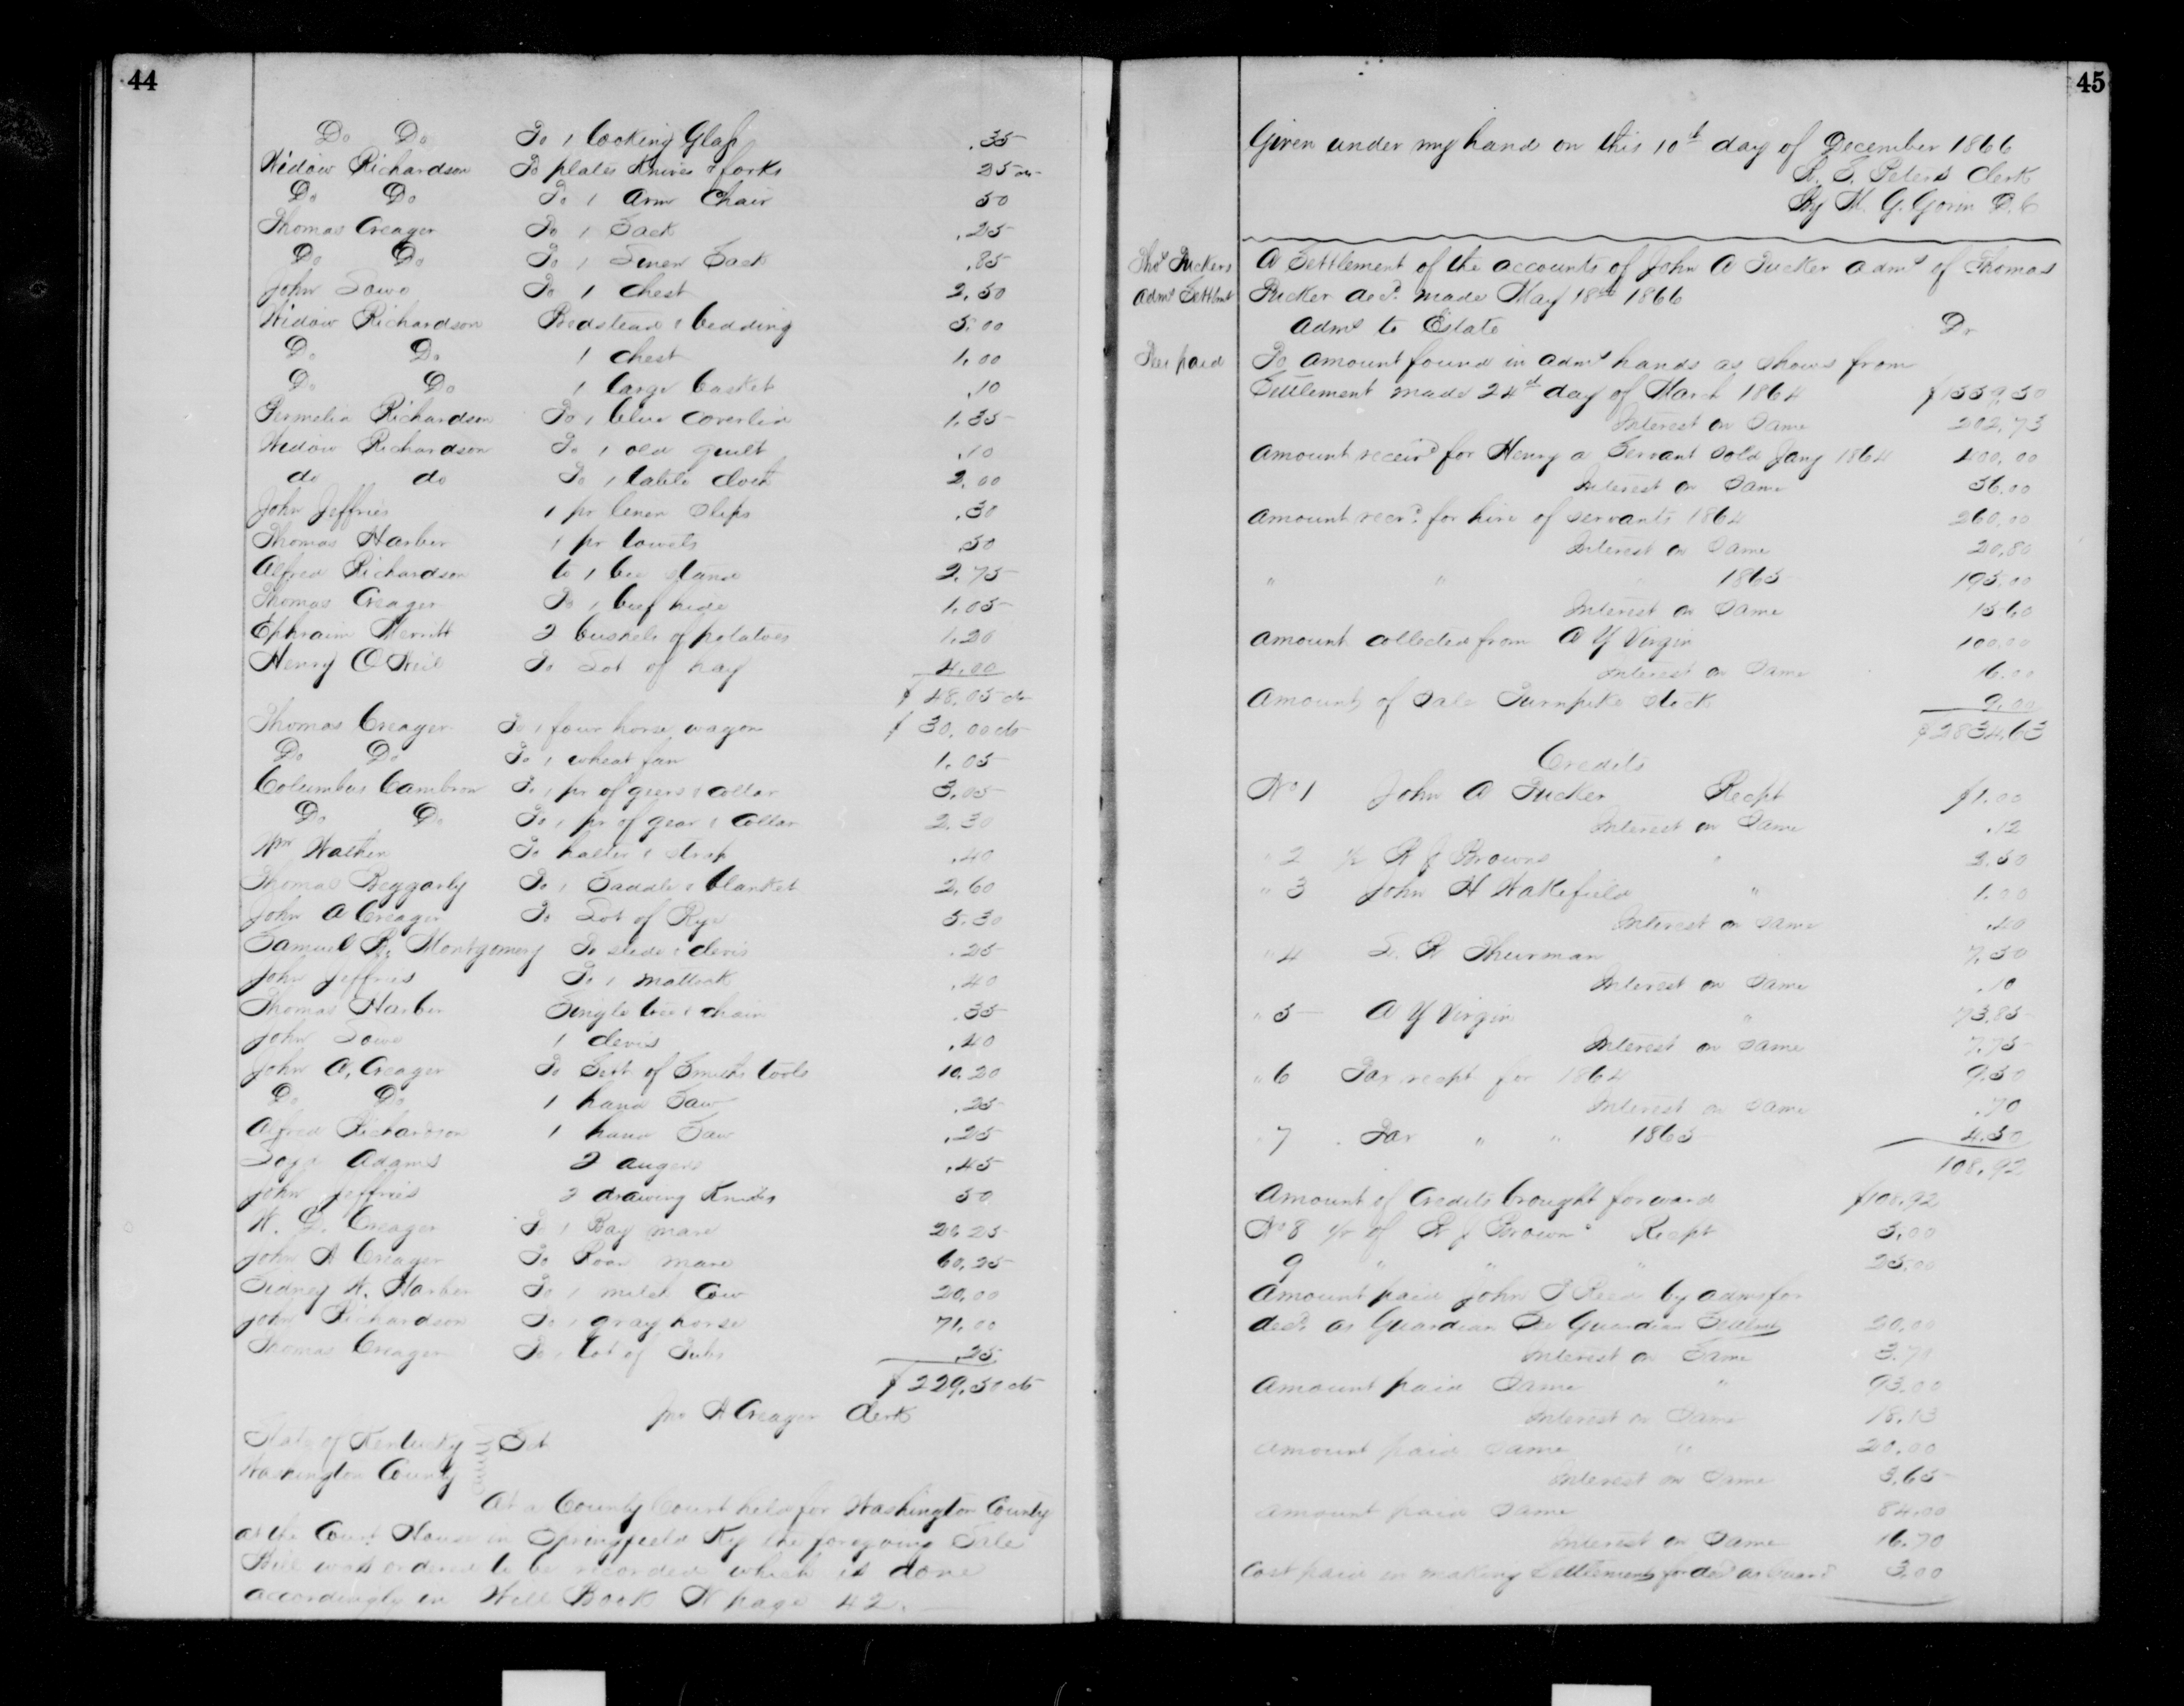 44
Do Do To 1 Looking Glass .35
Widow Richardson To plates Knives & forks 25 cts
Do Do To 1 Arm Chair 50
Thomas Creager To 1 Sack .25
Do Do To 1 Linen Sack .85
John Sowo To 1 chest 2.50
Widow Richardson Bedstead & bedding 5.00
Do Do 1 chest 1.00
Do Do 1 large basket .10
Permelia Richardson To 1 blue coverlid 1.35
Widow Richardson To 1 old quilt .10
do do To 1 table cloth 2.00
John Jeffries 1 pr linen slips .30
Thomas Harber 1 pr towels .50
Alfred Richardson to 1 bee stand 2.75
Thomas Creager To 1 beef hide 1.05
Ephraim Merritt 2 bushels of potatoes 1.20
Henry O Neil To Lot of hay 4.00
$ 48.05 cts
Thomas Creager To 1 four horse wagon $ 30.00 cts
Do Do To 1 wheat fan 1.05
Columbus Cambron To 1 pr of gears & collar 3.05
Do Do To 1 pr of gear & Collar 2.30
Wm Wathen To halter & strap .40
Thomas Beggarly To 1 Saddle & blanket 2.60
John A Creager To Lot of Rye 5.30
Samuel R. Montgomery To slide & clevis .25
John Jeffries To 1 mattock .40
Thomas Harber Single tree & chain .35
John Sowo 1 clevis .40
John A. Creager To Sett of Smiths tools 10.20
Do Do 1 hand Saw .25
Alfred Richardson 1 hand Saw .25
Adams 2 augers .45
John Jeffries 2 drawing Knives 50
W. D. Creager To 1 Bay mare 26.25
John A Creager To Roan mare 60.25
Sidney W. Harber To 1 milch Cow 20.00
John Richardson To 1 gray horse 71.00
Thomas Creager To 1 Lot of Tubs .25
$ 229.50 cts
Jno A Creager Clerk
State of Kentucky Sct
Washington County
At a County Court held for Washington County
at the Court House in Springfield Ky the foregoing Sale
Bill was ordered to be recorded which is done
accordingly in Will Book N page 42.
45
Given under my hand on this 10th day of December 1866
Peters Clerk
By M. G. Gorin D.C
Thos Tuckers
Adms Settlmt
A Settlement of the accounts of John A Tucker admr of Thomas
Tucker decd. made May 18th 1866
Admr to Estate Dr
Fee paid
To amount found in admrs hands as shows from
Settlement made 24th day of March 1864 $1559.50
Interest on Same 202.73
Amount receivd for Henry a Servant sold Jany 1864 400.00
Interest on Same 56.00
Amount recvd. for hire of servants 1864 260.00
Interest on Same 20.80
" " 1865 195.00
Interest on Same 15.60
Amount collected from A Y Virgin 100.00
Interest on Same 16.00
Amount of Sale Turnpike Stock 9.00
$2834.63
Credits
No 1 John A Tucker Recpt $1.00
Interest on Same .12
" 2 R J Browns " 2.50
" 3 John H Wakefield " 1.00
Interest on Same .40
" 4 S. R Thurman 7.50
Interest on Same .10
" 5 A Y Virgin " 73.85
Interest on Same 7.75
" 6 Tax recpt for 1864 9.50
Interest on Same .70
" 7 Tax " " 1865 4.50
108.92
Amount of Credits brought forward $108.92
No 8 of R J Browns Recpt 5.00
9 " " " 25.00
Amount paid John S Reed by admr for
decd. as Guardian See Guardian Settlmt 20.00
Interest on Same 3.70
Amount paid Same " 93.00
Interest on Same 18.13
Amount paid Same " 20.00
Interest on Same 3.65
Amount paid Same 84.00
Interest on Same 16.70
Cost paid in making Settlements for decd as Guard 3.00